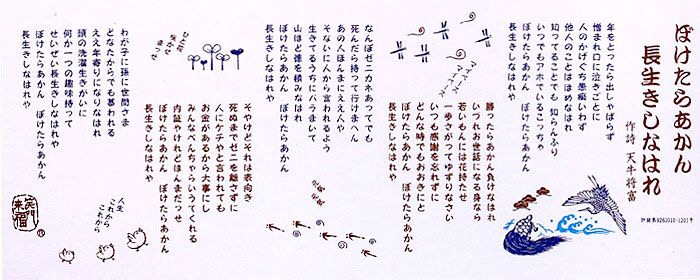 ぼけたらあかん
長生きしなはれ
作詩 天牛将富
許諾第9263010-1201号
年をとったら出しゃばらず
憎まれ口に泣きごとに
人のかげぐち愚痴いわず
他人のことはほめなはれ
知ってることでも 知らんふり
いつでもアホでいるこっちゃ
ぼけたらあかん ぼけたらあかん
長生きしなはれや
勝ったらあかん負けなはれ
いづれお世話になる身なら
若いもんには花持たせ
一歩さがってゆずりなさい
いつも感謝を忘れずに
どんな時でもおおきにと
ぼけたらあかん ぼけたらあかん
なんぼゼニカネあってでも
死んだら持って行けまへん
あの人ほんまにええ人や
そないに人から言われるよう
生きてるうちにバラまいて
山ほど徳を積みなはれ
ぼけたらあかん ぼけたらあかん
長生きしなはれや
元気
元気
そやけどそれは表向き
死ぬまでゼニを離さずに
人にケチやと言われても
お金があるから大事にし
みんなべんちゃらいうてくれる
内証やけれどほんまだっせ
ぼけたらあかん ぼけたらあかん
長生きしなはれや
わが子に孫に世間さま
どなたからでも慕われる
ええ年寄りになりなはれ
頭の洗濯生きがいに
何か一つの趣味持って
せいぜい長生きしなはれや
ぼけたらあかん ぼけたらあかん
長生きしなはれや
人生
これから
これから
笑門
来福